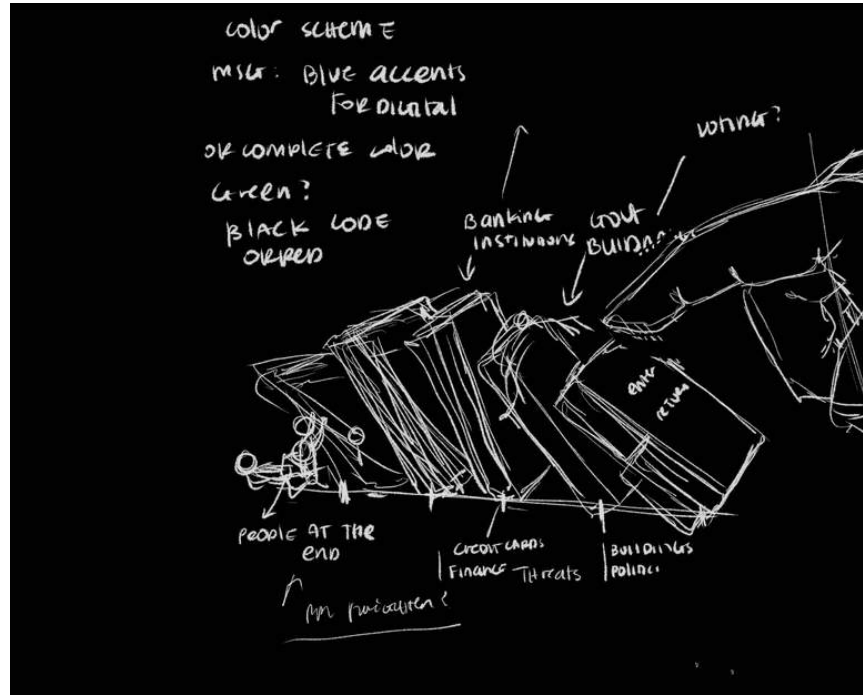 COLOR SCHEME
MSG: BLUE ACCENTS
FOR DIGITAL
OR COMPLETE COLOR
GREEN?
BLACK CODE
OR RED
VOTING?
BANKING
INSTITUTIONS
GOVT
BUILDING
enter
return
PEOPLE AT THE
END
CREDIT CARDS
FINANCE THREATS
BUILDINGS